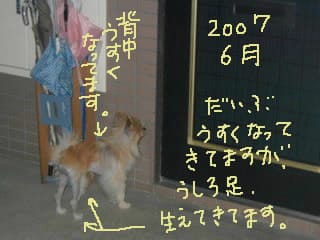 背中
うすく
なってます。
2007
6月
だいぶ
うすくなって
きてますが、
うしろ足、
生えてきてます。